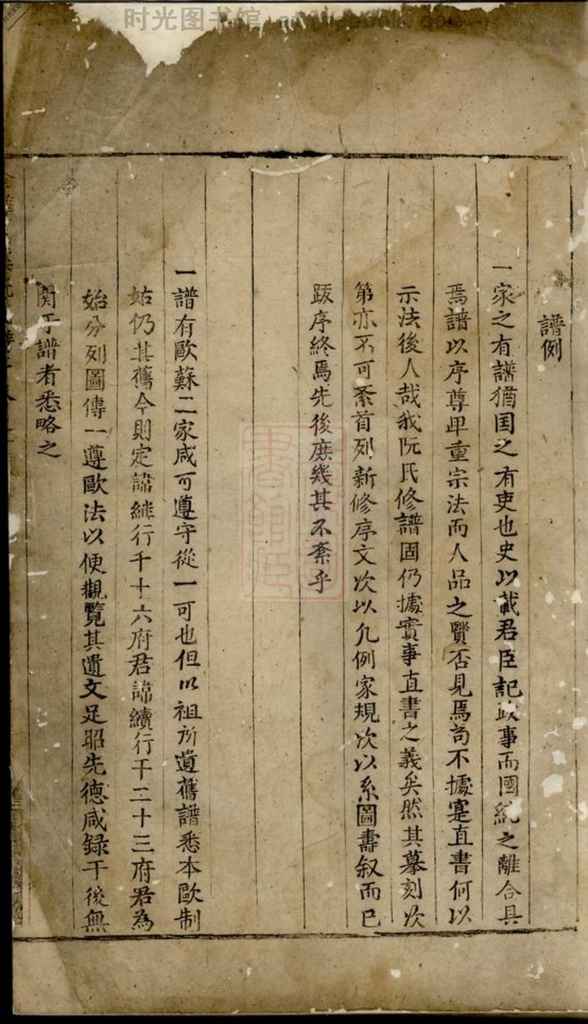 时光图书馆
譜例
一家之有譜猶国之有吏也史以載君臣記政事而國統之離合具
焉譜以序尊卑重宗法而人品之賢否見焉苟不據寔直書何以
示法後人哉我阮氏修譜固仍據實事直書之義矣然其摹刻次
第亦不可紊首列新修序文次以凢例家規次以系圖壽叙而已
跋序終焉先後庶幾其不紊乎
一譜有歐蘇二家咸可遵守從一可也但以祖所遺舊譜悉本歐制
姑仍其舊今則定諱緋行千十六府君諱續行千二十三府君為
始分列圖傳一遵歐法以便觀覽其遺文足昭先德咸録于後無
関于譜者悉略之